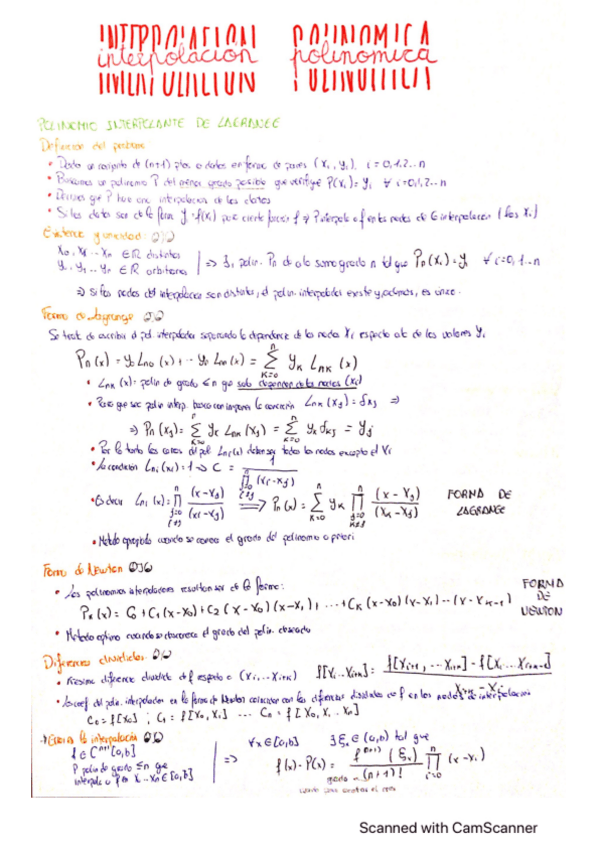 interpolación polinomica
POLINOMIO INTERPOLANTE DE LAGRANGE
Definición del problema
• Dado un conjunto de (n+1) ptos. o datos en forma de pares (xi, yi), i = 0,1,2...n
• Buscamos un polinomio P del menor grado posible que verifique P(xi) = yi ∀ i=0,1,2...n
• Decimos que P hace una interpolación de los datos
• Si los datos son de la forma y = f(xi) para cierta función f ⇒ P interpola a f en los nodos de la interpolación (los xi)
Existencia y unicidad:
x0, x1 ... xn ∈ ℝ distintos
y0, y1 ... yn ∈ ℝ arbitrarios
⇒ ∃, polin. Pn de a lo sumo grado n tal que Pn(xi) = yi ∀ i=0,1..n
⇒ si los nodos del interpolación son distintos, el polin. interpolador existe y, además, es único.
Forma de Lagrange
Se trata de escribir el pol interpolador separando la dependencia de los nodos xi respecto a la de los valores yi
Pn(x) = y0 Ln0(x) + ... yn Lnn(x) = Σ k=0 n yk Lnk(x)
• Lnk(x): polin de grado ≤ n que solo dependen de los nodos (xi)
• Para que sea polin interp. basta con imponer la condición Lnk(xj) = δkj ⇒
⇒ Pn(xj) = Σ k=0 n yk Lnk(xj) = Σ k=0 n yk δkj = yj
• Por lo tanto los ceros del pol. Lni(x) deben ser todos los nodos excepto el xi
• La condición Lni(xi) = 1 ⇒ C = 1 / ∏ (xi - xj)
• Es decir Lni(x) = ∏ j=0 i≠j n (x - xj) / (xi - xj) ⇒ Pn(x) = Σ k=0 n yk ∏ j=0 k≠j n (x - xj) / (xk - xj) FORMA DE LAGRANGE
• Método apropiado cuando se conoce el grado del polinomio a priori
Forma de Newton
• Los polinomios interpoladores resultan ser de la forma:
Pk(x) = C0 + C1(x-x0) + C2(x-x0)(x-x1) + ... + Ck(x-x0)(x-x1)...(x-xk-1) FORMA DE NEWTON
• Método optimo cuando se desconoce el grado del polin. deseado
Diferencias divididas
• diferencia dividida de f respecto a (xi,...xi+k) f[xi...xi+k] = f[xi+1,...xi+k] - f[xi...xi+k-1] / xi+k - xi
• Los coef del polin. interpolador en la forma de Newton coinciden con las diferencias divididas de f en los nodos de interpolación
C0 = f[x0] ; C1 = f[x0, x1] ... Cn = f[x0, x1..xn]
→ Error de la interpolación
f ∈ Cn+1[a,b]
P polin de grado ≤ n que
interpola a f en x0...xn ∈ [a,b]
⇒ ∀x ∈ [a,b] ∃ ξx ∈ (a,b) tal que
f(x) - P(x) = f(n+1)(ξx) / (n+1)! ∏ i=0 n (x - xi)
Scanned with CamScanner